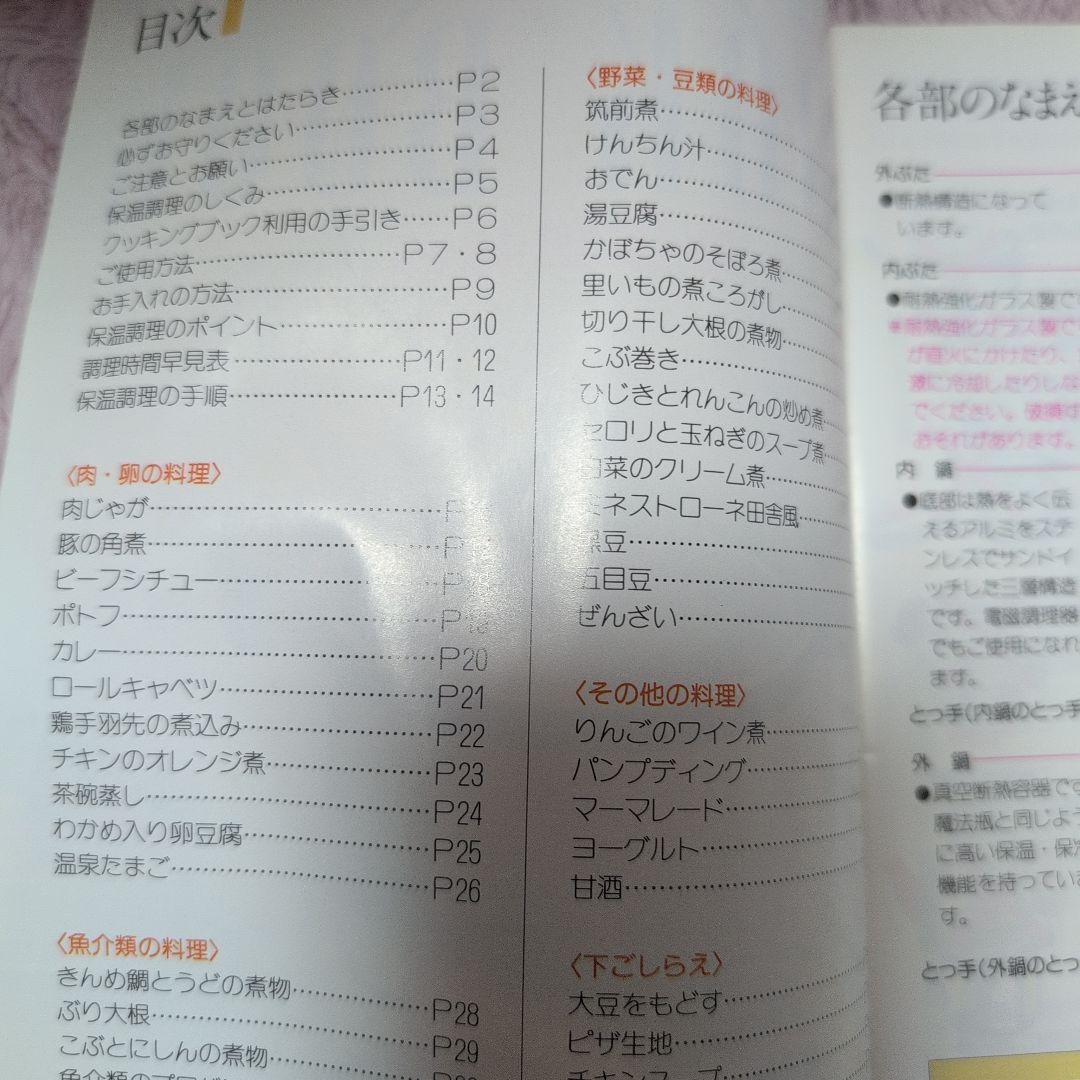 目次
各部のなまえとはたらき……………P2
必ずお守りください……………P3
ご注意とお願い……………P4
保温調理のしくみ……………P5
クッキングブック利用の手引き……P6
ご使用方法……………P7・8
お手入れの方法……………P9
保温調理のポイント……………P10
調理時間早見表……………P11・12
保温調理の手順……………P13・14
〈肉・卵の料理〉
肉じゃが……………
豚の角煮……………
ビーフシチュー……………
ポトフ……………
カレー……………P20
ロールキャベツ……………P21
鶏手羽先の煮込み……………P22
チキンのオレンジ煮……………P23
茶碗蒸し……………P24
わかめ入り卵豆腐……………P25
温泉たまご……………P26
〈魚介類の料理〉
きんめ鯛とうどの煮物……………
ぶり大根……………P28
こぶとにしんの煮物……………P29
〈野菜・豆類の料理〉
筑前煮……………
けんちん汁……………
おでん……………
湯豆腐……………
かぼちゃのそぼろ煮……
里いもの煮ころがし……
切り干し大根の煮物……
こぶ巻き……………
ひじきとれんこんの炒め煮…
セロリと玉ねぎのスープ煮…
菜のクリーム煮……
ネストローネ田舎風……
黒豆……………
五目豆……………
ぜんざい……………
〈その他の料理〉
りんごのワイン煮……
パンプディング……………
マーマレード……………
ヨーグルト……………
甘酒……………
〈下ごしらえ〉
大豆をもどす……………
ピザ生地……………
チキンスープ……………
各部のなまえ
外ぶた
●断熱構造になって
います。
内ぶた
●耐熱強化ガラス製で
●耐熱強化ガラス製で
が直火にかけたり、
激に冷却したりしな
でください。破損す
おそれがあります。
内鍋
●底部は熱をよく伝
えるアルミをステ
ンレスでサンドイ
ッチした三層構造
です。電磁調理器
でもご使用になれ
ます。
とっ手(内鍋のとっ手
外鍋
●真空断熱容器です
魔法瓶と同じよう
に高い保温・保冷
機能を持っていま
す。
とっ手(外鍋のとっ